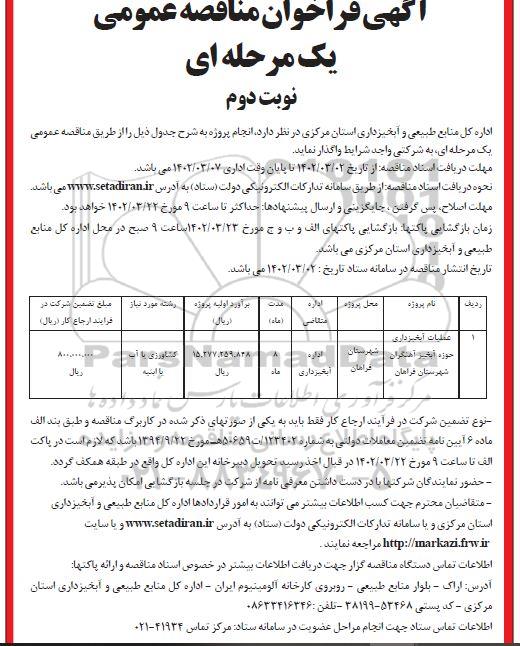 آگهی فراخوان مناقصه عمومی
یک مرحله ای
نوبت دوم
اداره کل منابع طبیعی و آبخیزداری استان مرکزی در نظر دارد، انجام پروژه به شرح جدول ذیل را از طریق مناقصه عمومی
یک مرحله ای، به شرکتی واجد شرایط واگذار نماید.
مهلت دریافت اسناد مناقصه: از تاریخ ۱۴۰۲/۰۳/۰۲ تا پایان وقت اداری ۱۴۰۲/۰۳/۰۷ می باشد.
نحوه دریافت اسناد مناقصه: از طریق سامانه تدارکات الکترونیکی دولت (ستاد) به آدرس www.setadiran.ir می باشد.
مهلت اصلاح، پس گرفتن ، جایگزینی و ارسال پیشنهادها: حداکثر تا ساعت ۹ مورخ ۱۴۰۲/۰۳/۲۲ خواهد بود.
زمان بازگشایی پاکتها: بازگشایی پاکتهای الف و ب و ج مورخ ۱۴۰۲/۰۳/۲۳ساعت ۹ صبح در محل اداره کل منابع
طبیعی و آبخیزداری استان مرکزی می باشد.
تاریخ انتشار مناقصه در سامانه ستاد تاریخ : ۱۴۰۲/۰۳/۰۲ می باشد.
ردیف نام پروژه محل پروژه اداره متقاضی مدت (ماه) برآورد اولیه پروژه (ریال) رشته مورد نیاز مبلغ تضمین شرکت در فرایند ارجاع کار (ریال)
۱ عملیات آبخیزداری حوزه آبخیز آهنگران شهرستان فراهان شهرستان فراهان اداره آبخیزداری ۸ ماه ۱۵,۲۷۷,۲۵۹,۸۴۸ ریال کشاورزی یا آب یا ابنیه ۸۰۰,۰۰۰,۰۰۰ ریال
-نوع تضمین شرکت در فرآیند ارجاع کار فقط باید به یکی از صورتهای ذکر شده در کاربرگ مناقصه و طبق بند الف
ماده ۶ آیین نامه تضمین معاملات دولتی به شماره ۱۲۳۴۰۲/ت۵۰۶۵۹هـ-مورخ ۱۳۹۴/۹/۲۲ باشد که لازم است در پاکت
الف تا ساعت ۹ مورخ ۱۴۰۲/۰۳/۲۲ در قبال اخذ رسید تحویل دبیرخانه این اداره کل واقع در طبقه همکف گردد.
- حضور نمایندگان شرکتها با در دست داشتن معرفی نامه از شرکت در جلسه بازگشایی امکان پذیر می باشد.
- متقاضیان محترم جهت کسب اطلاعات بیشتر می توانند به امور قراردادها اداره کل منابع طبیعی و آبخیزداری
استان مرکزی و یا سامانه تدارکات الکترونیکی دولت (ستاد) به آدرس www.setadiran.ir و یا سایت
http://markazi.frw.ir مراجعه نمایند .
اطلاعات تماس دستگاه مناقصه گزار جهت دریافت اطلاعات بیشتر در خصوص اسناد مناقصه و ارائه پاکتها:
آدرس: اراک - بلوار منابع طبیعی - روبروی کارخانه آلومینیوم ایران - اداره کل منابع طبیعی و آبخیزداری استان
مرکزی - کد پستی ۵۳۴۶۸-۳۸۱۹۹ -تلفن :۰۸۶۳۳۴۱۶۳۴۶
اطلاعات تماس ستاد جهت انجام مراحل عضویت در سامانه ستاد: مرکز تماس ۴۱۹۳۴-۰۲۱
ParsNamadData